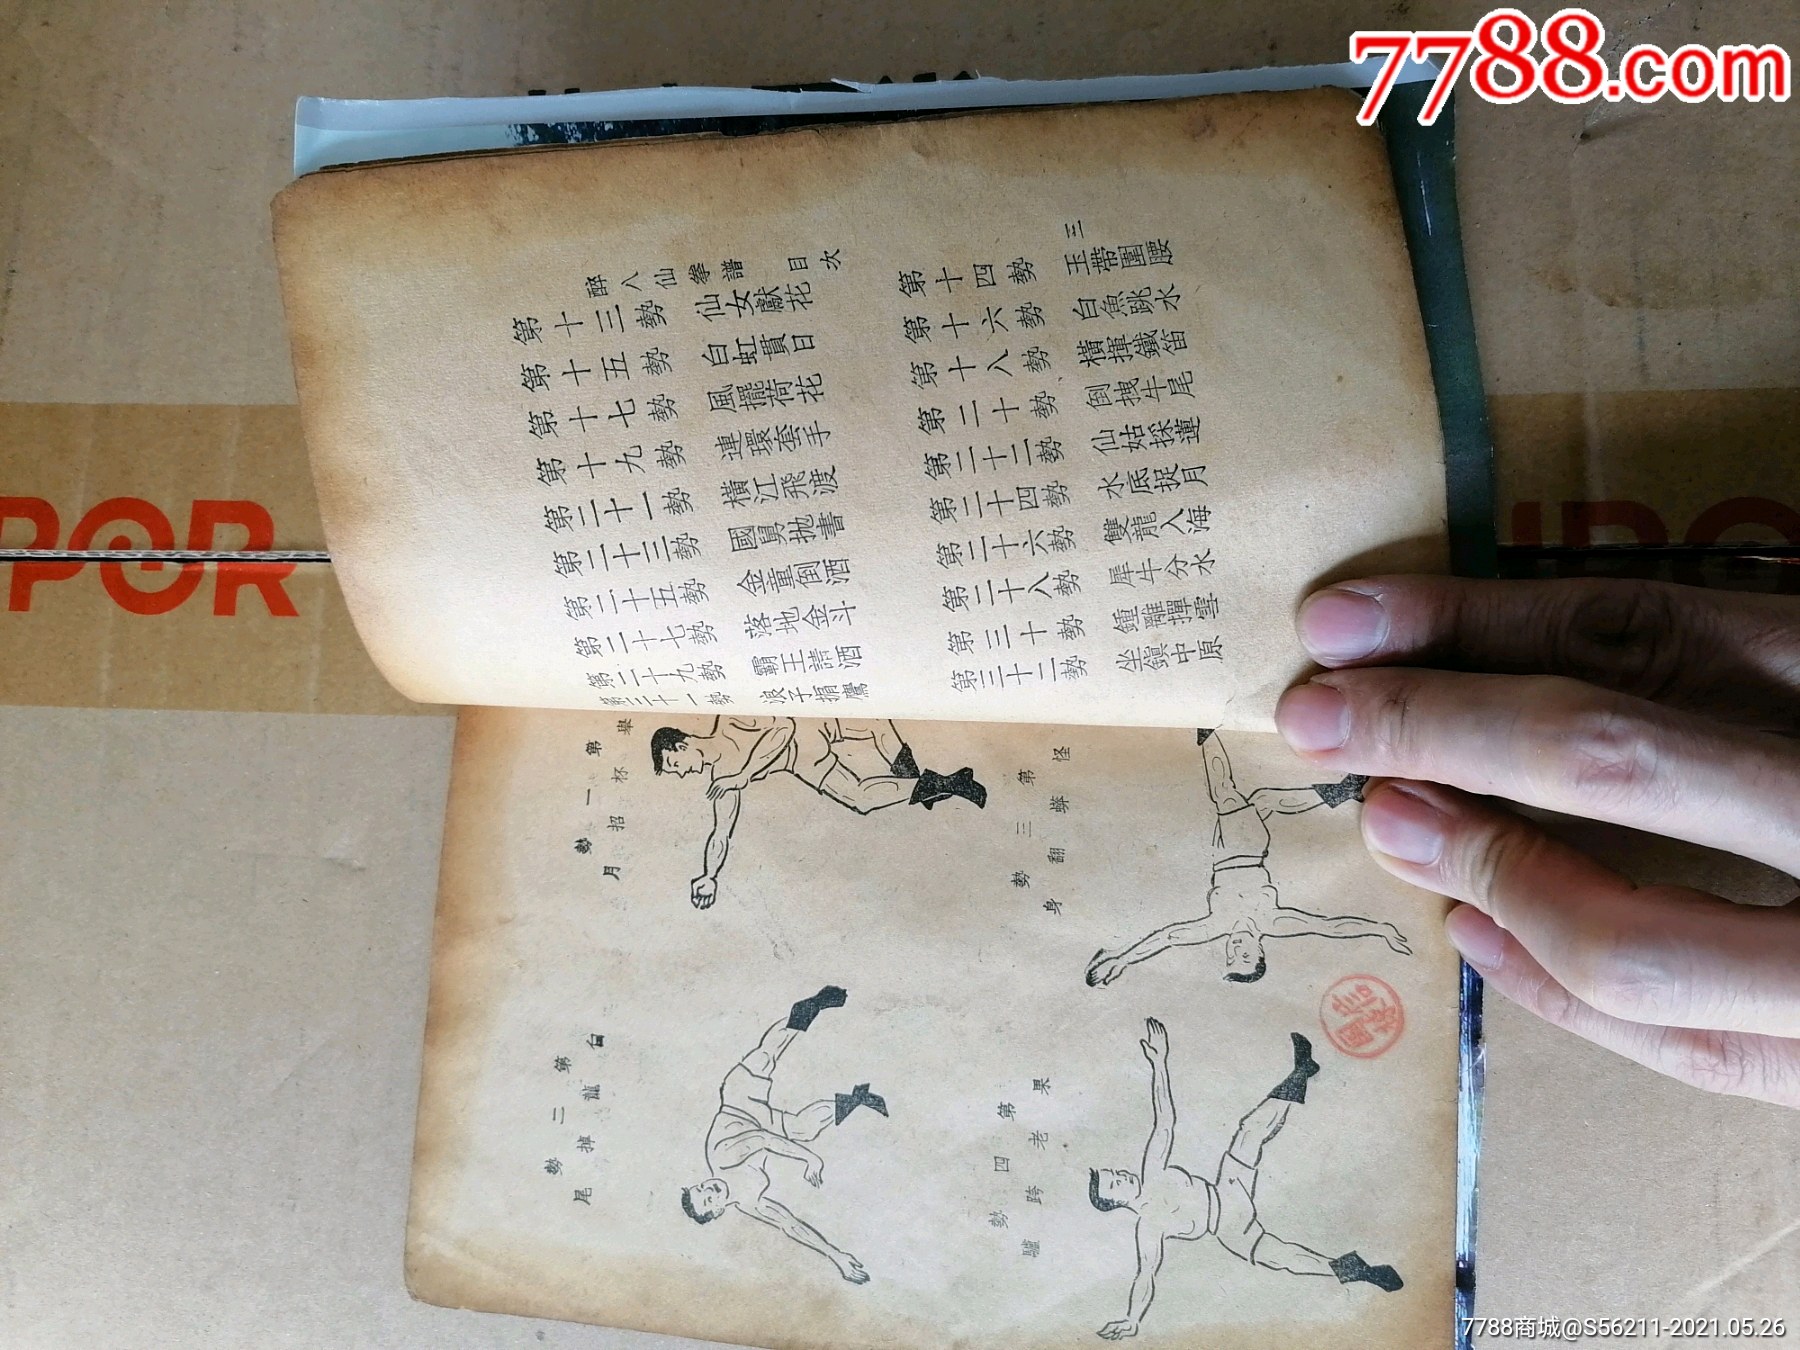 7788.com
醉八仙拳譜 目次 三
第十三勢 仙女獻花 第十四勢 玉帶圍腰
第十五勢 白虹貫日 第十六勢 白魚跳水
第十七勢 風擺荷花 第十八勢 橫揮鐵笛
第十九勢 連環套手 第二十勢 倒拽牛尾
第二十一勢 橫江飛渡 第二十二勢 仙姑採蓮
第二十三勢 國舅拋書 第二十四勢 水底捉月
第二十五勢 金童倒酒 第二十六勢 雙龍入海
第二十七勢 落地金斗 第二十八勢 犀牛分水
第二十九勢 霸王請酒 第三十勢 鍾離撣雲
第三十一勢 浪子 第三十二勢 坐鎮中原
第一勢
舉杯招月
第三勢
怪蟒翻身
第二勢
白龍掉尾
第四勢
果老跨驢
POR
7788商城@S56211-2021.05.26